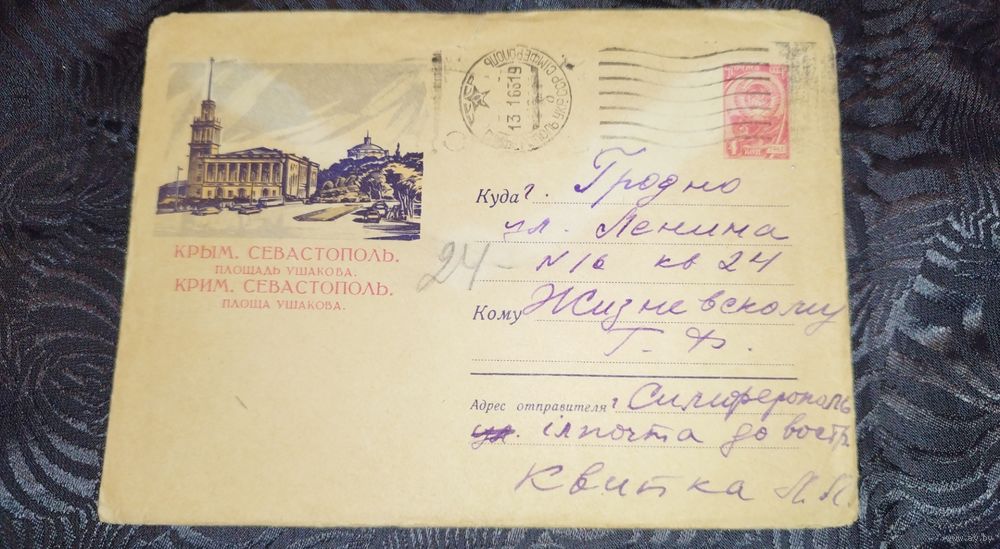 КРЫМ. СЕВАСТОПОЛЬ.
ПЛОЩАДЬ УШАКОВА.
КРИМ. СЕВАСТОПОЛЬ.
ПЛОЩА УШАКОВА.
СІМФЕРОПОЛЬ
13 1 63 19
ПОЧТА
4
КОП
24-
Куда г. Гродно
ул. Ленина
N 16 кв 24
Кому Жизневскому
Г. Ф.
Адрес отправителя г Симферополь
почта до востр.
Квитка